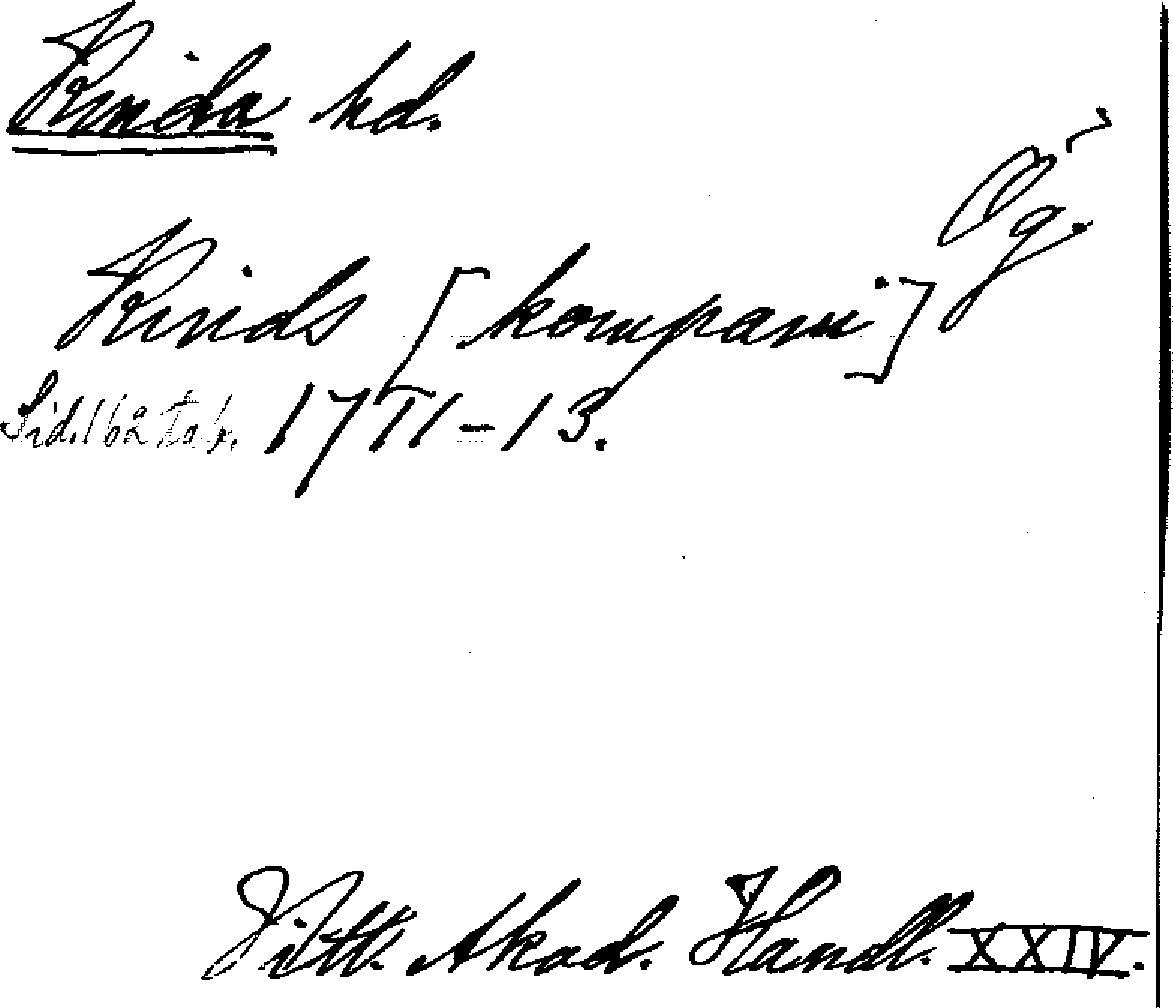 Kinda hd.
Ög.
Kinds [kompani]
Sid. 162 tab. 1711-13.
Vitt. Akad. Handl. XXIV.